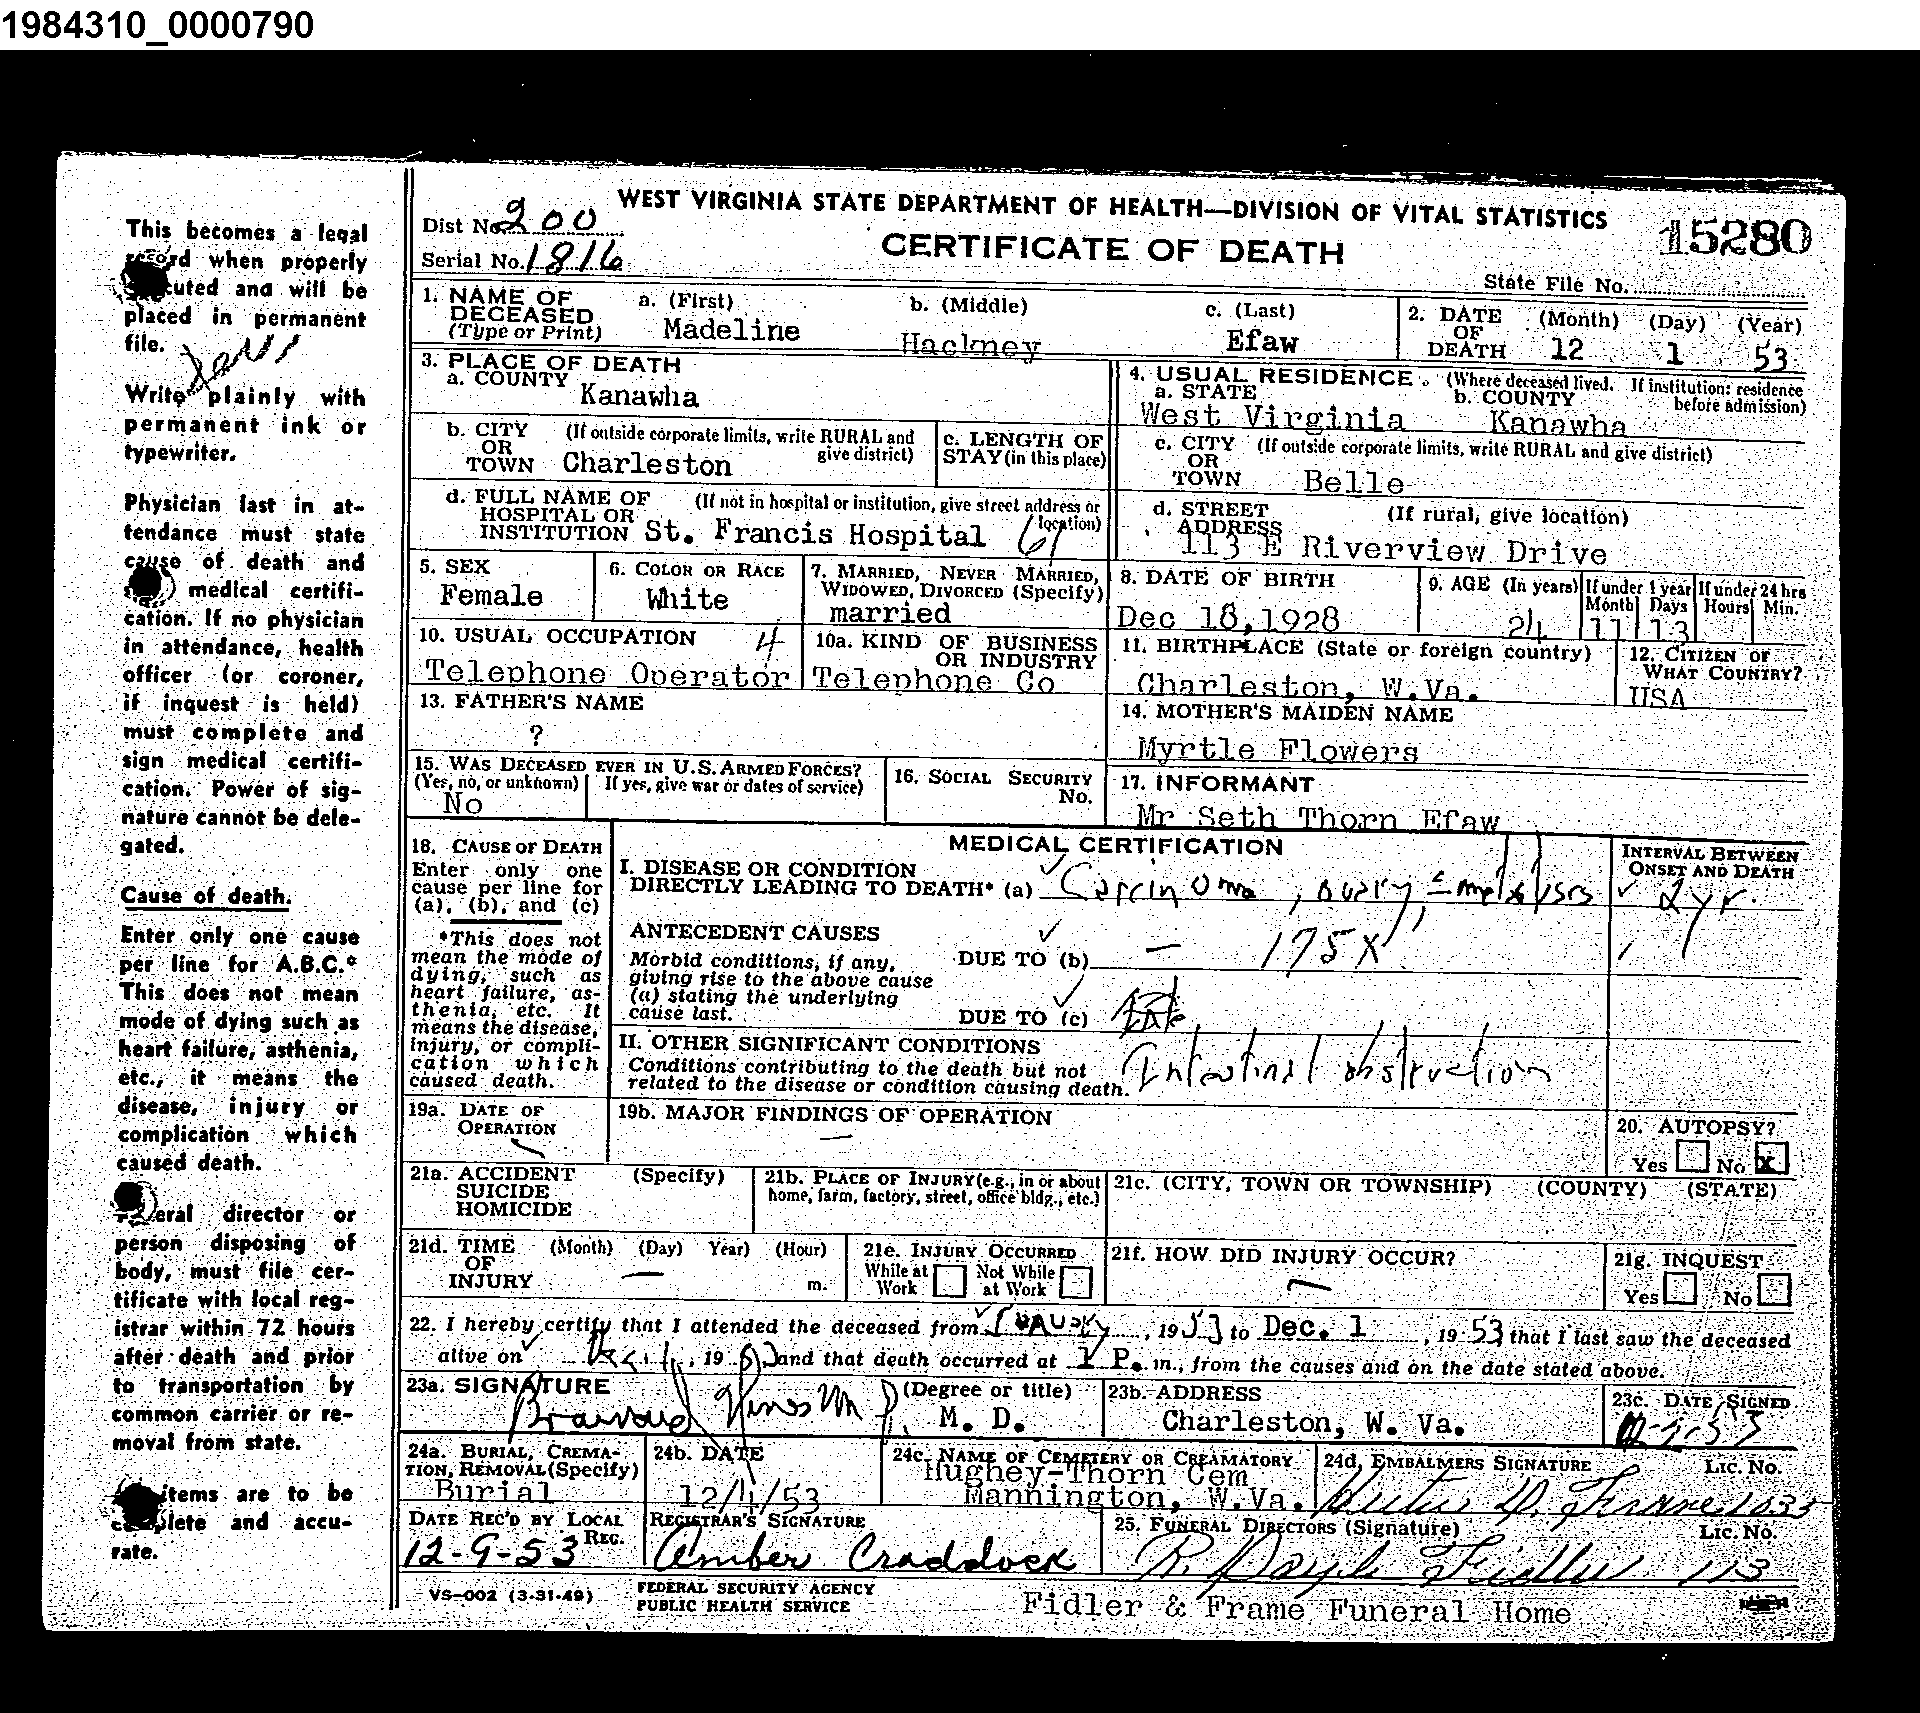 1984310_0000790
WEST VIRGINIA STATE DEPARTMENT OF HEALTH—DIVISION OF VITAL STATISTICS
CERTIFICATE OF DEATH
15280
Dist No. 200
Serial No. 1816
State File No.
This becomes a legal
when properly
and will be
placed in permanent
file.
Write plainly with
permanent ink or
typewriter.
Physician last in at-
tendance must state
cause of death and
medical certifi-
cation. If no physician
in attendance, health
officer (or coroner,
if inquest is held)
must complete and
sign medical certifi-
cation. Power of sig-
nature cannot be dele-
gated.
Cause of death.
Enter only one cause
per line for A.B.C.*
This does not mean
mode of dying such as
heart failure, asthenia,
etc., it means the
disease, injury or
complication which
caused death.
director or
person disposing of
body, must file cer-
tificate with local reg-
istrar within 72 hours
after death and prior
to transportation by
common carrier or re-
moval from state.
items are to be
and accu-
rate.
1. NAME OF DECEASED (Type or Print)
a. (First) Madeline
b. (Middle) Hackney
c. (Last) Efaw
2. DATE OF DEATH (Month) (Day) (Year)
12 1 53
3. PLACE OF DEATH
a. COUNTY Kanawha
b. CITY OR TOWN (If outside corporate limits, write RURAL and give district) Charleston
c. LENGTH OF STAY (in this place)
d. FULL NAME OF HOSPITAL OR INSTITUTION (If not in hospital or institution, give street address or location) St. Francis Hospital
4. USUAL RESIDENCE. (Where deceased lived. If institution: residence before admission)
a. STATE West Virginia
b. COUNTY Kanawha
c. CITY OR TOWN (If outside corporate limits, write RURAL and give district) Belle
d. STREET ADDRESS (If rural, give location) 113 E Riverview Drive
5. SEX Female
6. COLOR OR RACE White
7. MARRIED, NEVER MARRIED, WIDOWED, DIVORCED (Specify) married
8. DATE OF BIRTH Dec 18,1928
9. AGE (In years) 24
If under 1 year Month 11 Days 13
If under 24 hrs Hours Min.
10. USUAL OCCUPATION 4 Telephone Operator
10a. KIND OF BUSINESS OR INDUSTRY Telephone Co
11. BIRTHPLACE (State or foreign country) Charleston, W.Va.
12. CITIZEN OF WHAT COUNTRY? USA
13. FATHER'S NAME ?
14. MOTHER'S MAIDEN NAME Myrtle Flowers
15. WAS DECEASED EVER IN U.S. ARMED FORCES?
(Yes, no, or unknown) No
If yes, give war or dates of service)
16. SOCIAL SECURITY No.
17. INFORMANT Mr Seth Thorn Efaw
MEDICAL CERTIFICATION
18. CAUSE OF DEATH
Enter only one cause per line for (a), (b), and (c)
*This does not mean the mode of dying, such as heart failure, asthenia, etc. It means the disease, injury, or complication which caused death.
I. DISEASE OR CONDITION DIRECTLY LEADING TO DEATH* (a) Carcinoma, ovary,
INTERVAL BETWEEN ONSET AND DEATH
2 yr.
ANTECEDENT CAUSES
Morbid conditions, if any, giving rise to the above cause (a) stating the underlying cause last.
DUE TO (b) — 175X
DUE TO (c)
II. OTHER SIGNIFICANT CONDITIONS
Conditions contributing to the death but not related to the disease or condition causing death. Intestinal obstruction
19a. DATE OF OPERATION
19b. MAJOR FINDINGS OF OPERATION —
20. AUTOPSY? Yes No X
21a. ACCIDENT SUICIDE HOMICIDE (Specify)
21b. PLACE OF INJURY (e.g., in or about home, farm, factory, street, office bldg., etc.)
21c. (CITY, TOWN OR TOWNSHIP) (COUNTY) (STATE)
21d. TIME OF INJURY (Month) (Day) Year) (Hour) — m.
21e. INJURY OCCURRED While at Work Not While at Work
21f. HOW DID INJURY OCCUR? —
21g. INQUEST Yes No
22. I hereby certify that I attended the deceased from , 1953 to Dec. 1, 19 53 that I last saw the deceased
alive on , 19 53 and that death occurred at 1 P. m., from the causes and on the date stated above.
23a. SIGNATURE Hines M D (Degree or title) M. D.
23b. ADDRESS Charleston, W. Va.
23c. DATE SIGNED
24a. BURIAL, CREMATION, REMOVAL (Specify) Burial
24b. DATE 12/4/53
24c. NAME OF CEMETERY OR CREAMATORY Hughey-Thorn Cem
Mannington, W.Va.
24d. EMBALMERS SIGNATURE Lic. No.
Frame 1035
DATE REC'D BY LOCAL REG. 12-9-53
REGISTRAR'S SIGNATURE Amber Craddock
25. FUNERAL DIRECTORS (Signature) Lic. No.
R. Doyle Fidler 113
VS-002 (3-31-49)
FEDERAL SECURITY AGENCY
PUBLIC HEALTH SERVICE
Fidler & Frame Funeral Home